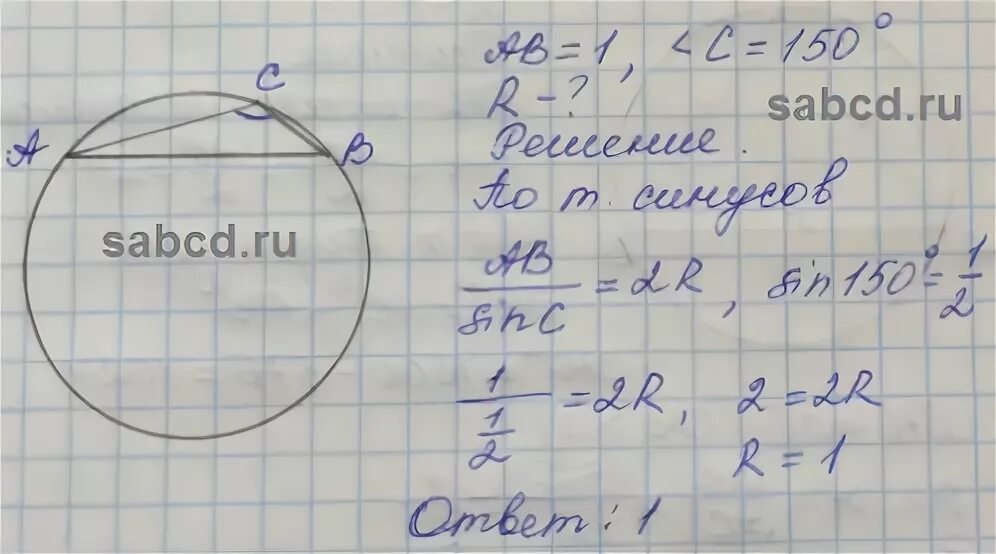 AB = 1, < C = 150°
R - ?
sabcd.ru
Решение.
По т. синусов
C
A
B
sabcd.ru
AB/sin C = 2R, sin 150° = 1/2
1/(1/2) = 2R, 2 = 2R
R = 1
Ответ: 1